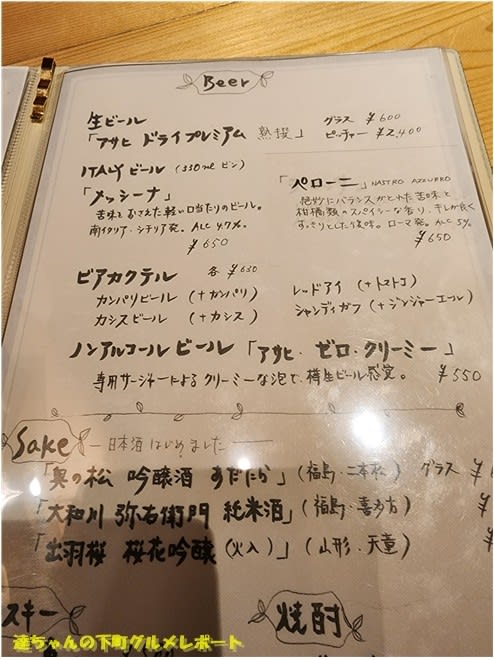 Beer
生ビール
「アサヒ ドライプレミアム 熟撰」
グラス ¥600
ピッチャー ¥2,400
ITALYビール (330ml ビン)
「メッシーナ」
苦味をおさえた軽い口当たりのビール。
南イタリア・シチリア発。ALC 4.7%。
¥650
「ペローニ」 NASTRO AZZURRO
絶妙にバランスがとれた苦味と
柑橘類のスパイシーな香り、キレが良く
すっきりとした後味。ローマ発。ALC 5%
¥650
ビアカクテル 各 ¥630
カンパリビール (+カンパリ)
カシスビール (+カシス)
レッドアイ (+トマト)
シャンディガフ (+ジンジャーエール)
ノンアルコールビール 「アサヒ・ゼロ・クリーミー」
専用サージャーによるクリーミーな泡で、樽生ビール感覚。 ¥550
Sake 日本酒はじめました
「奥の松 吟醸酒 あだたら」 (福島・二本松) グラス ¥
「大和川 弥右衛門 純米酒」 (福島・喜多方) ¥
「出羽桜 桜花吟醸 (火入)」 (山形・天童) ¥
スキー
焼酎
達ちゃんの下町グルメレポート